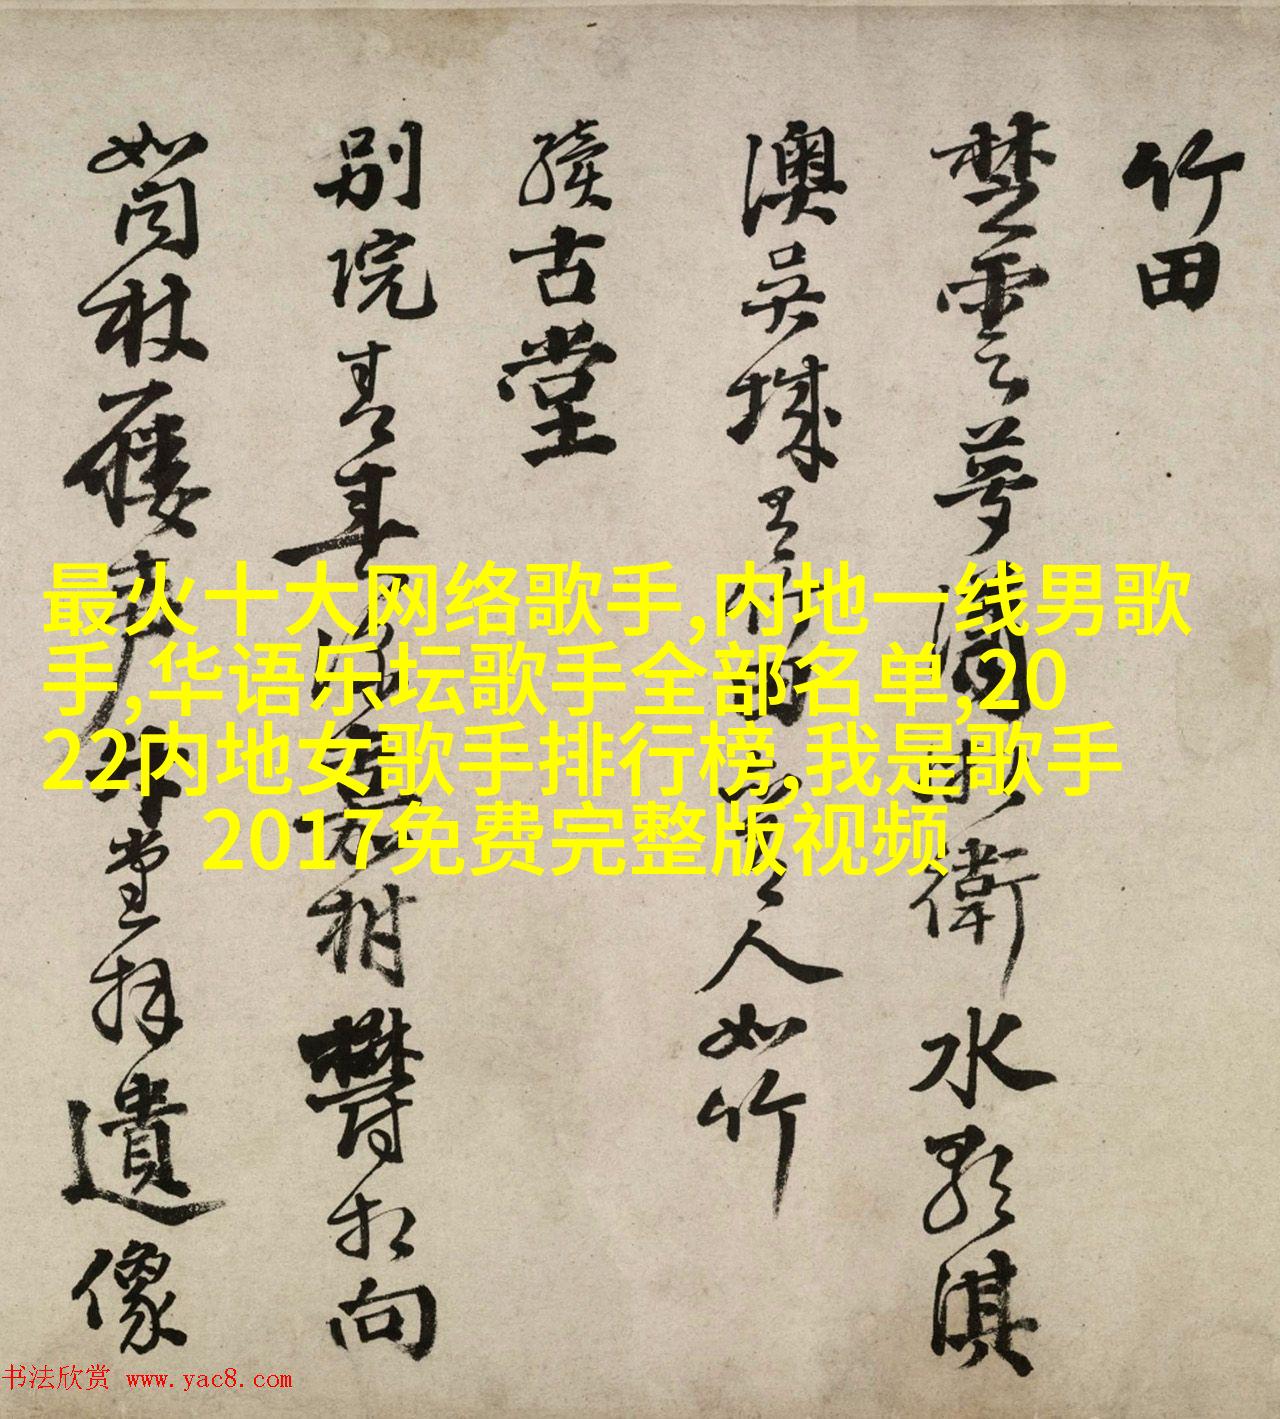 竹田
楚雲夢衛水影淇
澳吳城竹人如竹
續古堂
別院青春深嘉樹鬱相向
如聞杖屨聲升堂拜遺像
最火十大网络歌手,内地一线男歌
手,华语乐坛歌手全部名单,20
22内地女歌手排行榜,我是歌手
2017免费完整版视频
书法欣赏 www.yac8.com